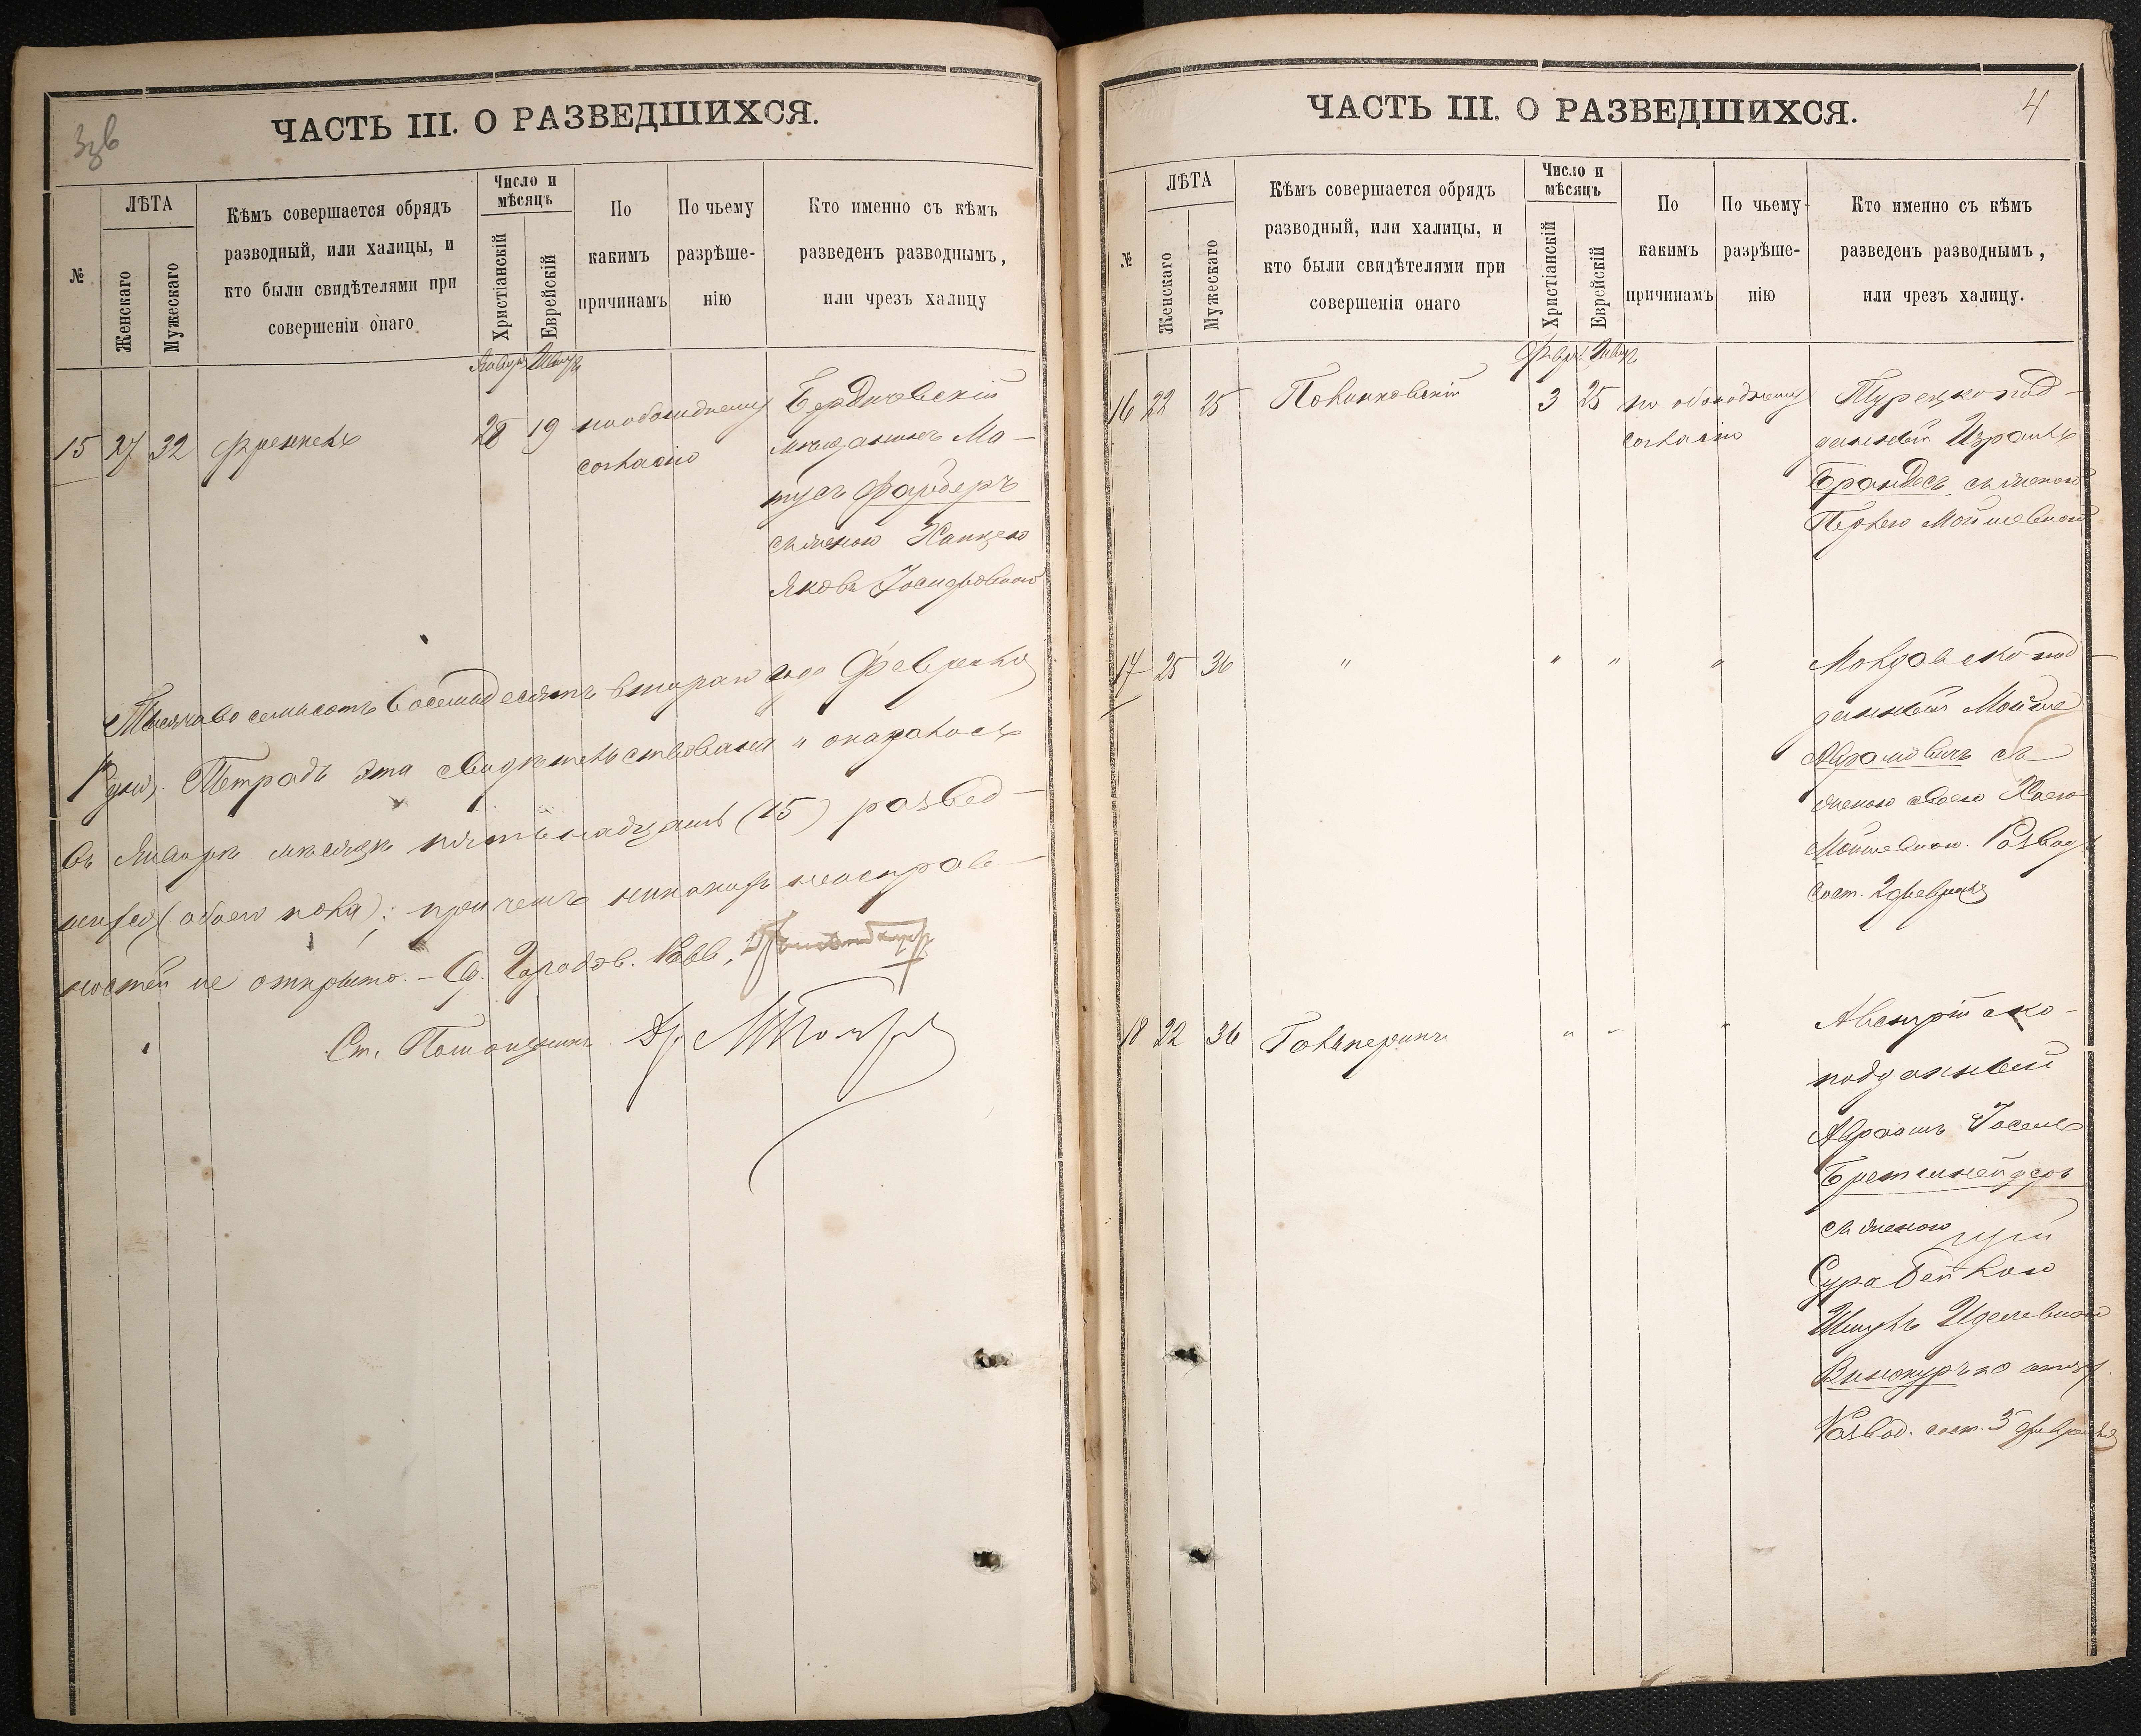 ЧАСТЬ III. О РАЗВЕДШИХСЯ.
№
ЛѢТА
Женскаго
Мужескаго
Кѣмъ совершается обрядъ
разводный, или халицы, и
кто были свидѣтелями при
совершеніи онаго
Число и
мѣсяцъ
Христіанскій
Еврейскій
По
какимъ
причинамъ
По чьему
разрѣше-
нію
Кто именно съ кѣмъ
разведенъ разводнымъ,
или чрезъ халицу
15 27 32 Френкель 28 19 по обоюдному
согласію
Бердичевскій
мѣщанинъ Мо-
тусъ Фарберъ
съ женою Ханцею
Яковъ Іосифовною
Тысяча восемьсотъ восемьдесятъ втораго года Февраля
дня, Тетрадь эта свидѣтельствована и оказалось
въ Январѣ мѣсяцѣ пятьнадцать (15) развед-
шихся (обоего пола); при чемъ никакихъ неисправ-
ностей не открыто. – Од. Городов. Равв.
Ст. Помощникъ Др.
ЧАСТЬ III. О РАЗВЕДШИХСЯ.
4
№
ЛѢТА
Женскаго
Мужескаго
Кѣмъ совершается обрядъ
разводный, или халицы, и
кто были свидѣтелями при
совершеніи онаго
Число и
мѣсяцъ
Христіанскій
Еврейскій
По
какимъ
причинамъ
По чьему
разрѣше-
нію
Кто именно съ кѣмъ
разведенъ разводнымъ,
или чрезъ халицу.
16 22 25 Полинковскій 3 25 по обоюдному
согласію
Турецко под-
данный Израиль
Брандесъ съ женою
Перлею Мойшевною
17 25 36 " " " "
Молдавско под-
данный Мойше
Абрамовичъ съ
женою своею Хаею
Мойшевною. Разводъ
сост. 2 февраля
18 22 36 Гольперинъ " " "
Австрійско-
подданный
Авраамъ Іосель
Бретшнейдеръ
съ женою
Сура Бейлою
Шмуль Иделевною
Винокуръ
Развод. сост. 5 февраля